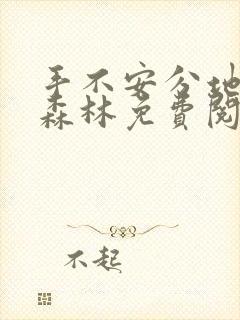 手不安分地
森林免费阅
不起